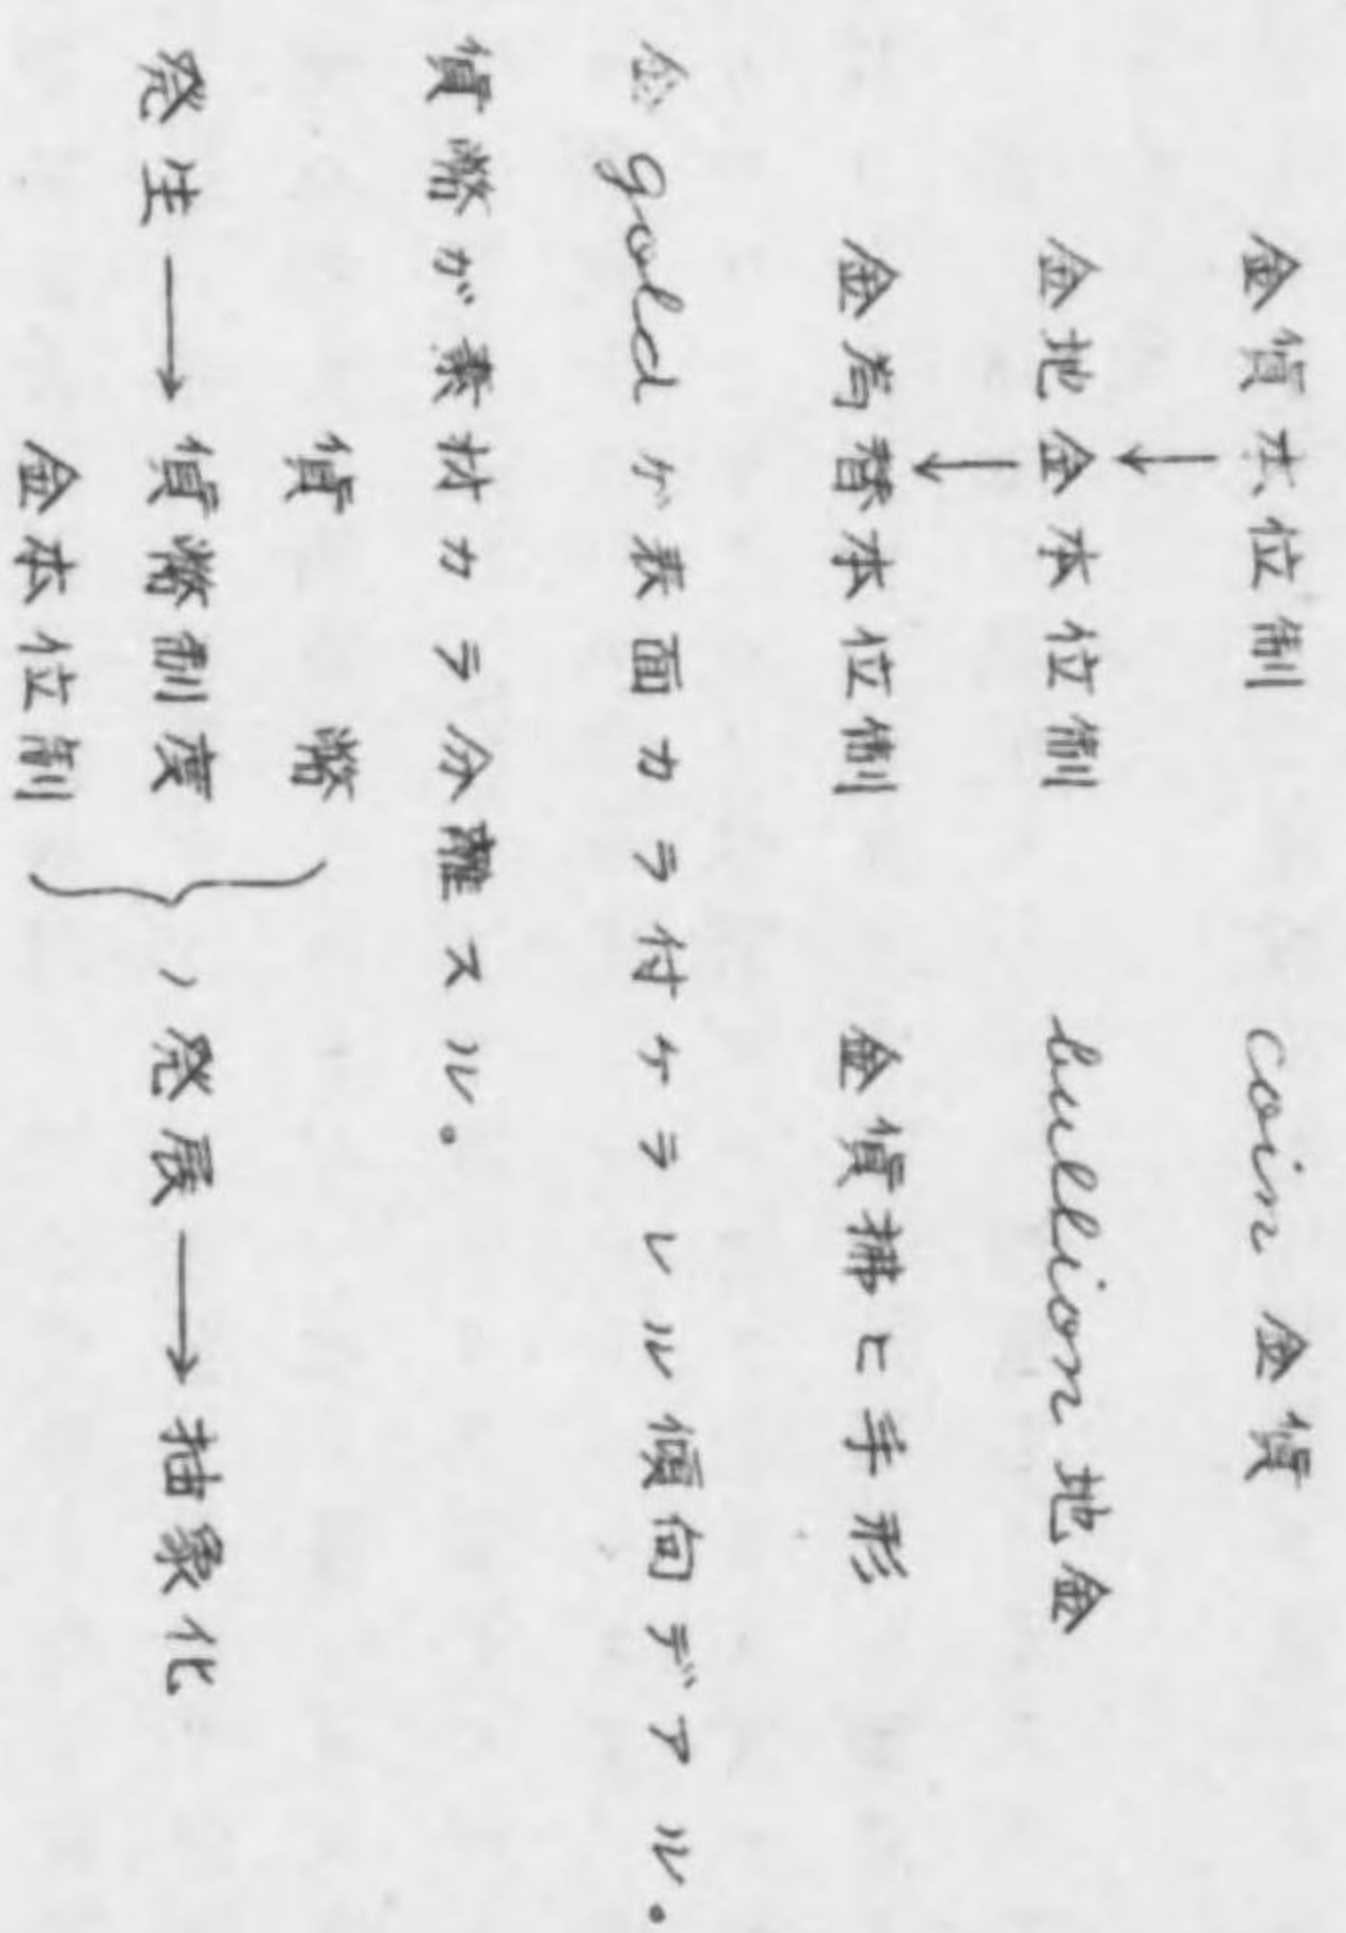 金貨本位制 coin 金貨
↓
金地金本位制 bullion 地金
↓
金為替本位制 金貨拂ヒ手形
金 gold ガ表面カラ付ケラレル傾向デアル。
貨幣ガ素材カラ分離スル。
貨幣
発生 → 貨幣制度 } ノ発展 → 抽象化
金本位制